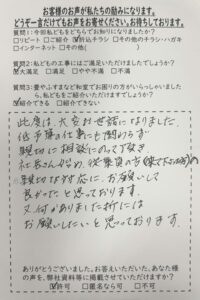 お客様の声が私たちの励みになります。
どうぞ一言だけでもお声をお寄せください。お待ちしております。
質問1:今回私どもをどちらでお知りになりましたか?
□リピート □ご紹介 ☑折込チラシ □その他のチラシ・ハガキ
□インターネット □その他( )
質問2:私どもの工事にはご満足いただけましたでしょうか?
☑大満足 □満足 □やや不満 □不満
質問3:畳やふすまなど和室でお困りの方がいらっしゃいましたら、私どもをご紹介いただけますでしょうか?
☑紹介できる □紹介できない
此度は大変お世話になりました。
低予算の仕事にも関わらず
親切に相談にのって頂き
社長さん始め、従業員の方
親切な対応に、お願いして
良かったと思っております。
又何かありました折には
お願いしたいと思っております。
ありがとうございました。お答えいただいた、あなた様
の声を、弊社資料等に掲載させていただけますか?
☑許可 □匿名なら可 □不可